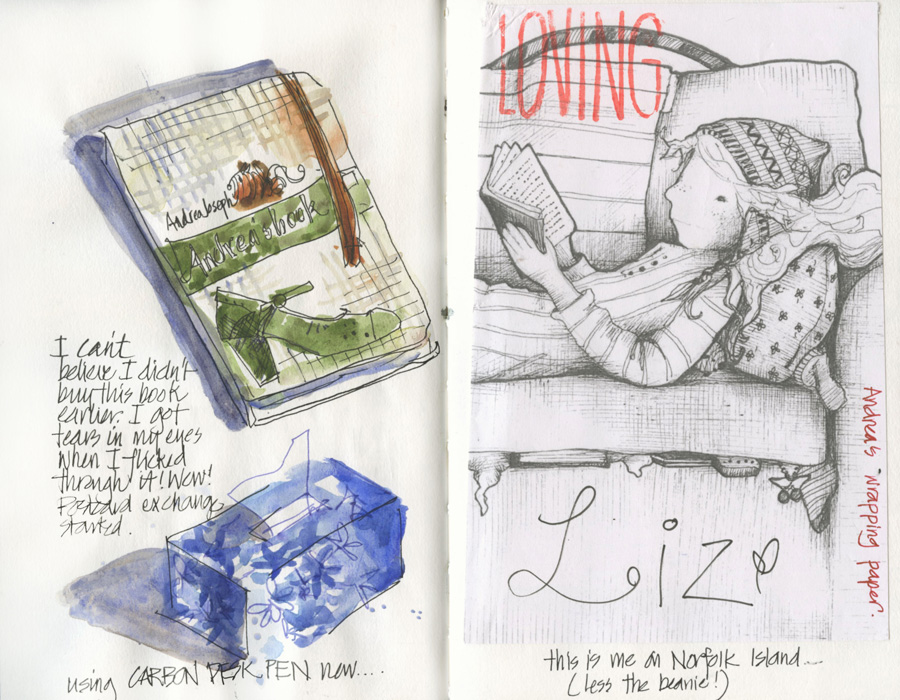 Andrea Joseph
Andrea's book
I can't
believe I didn't
buy this book
earlier. I got
tears in my eyes
when I flicked
through it! Wow!
Postcard exchange
started.
using CARBON DESK PEN now....
LOVING
Liz
Andrea's wrapping paper
this is me on Norfolk Island....
(less the beanie!)